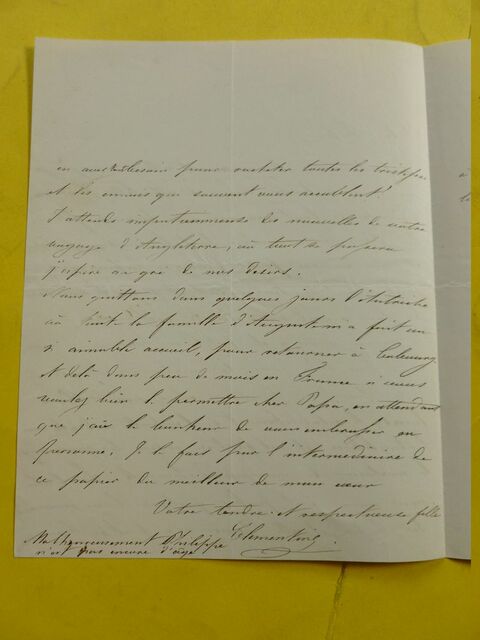 en avez besoin pour racheter toutes les tristesses
et les ennuis qui souvent vous accablent!
J'attends impatiemment des nouvelles de votre
voyage d'Angleterre, où tout se passera
j'espère au gré de nos désirs.
Nous quittons dans quelques jours l'Autriche
où toute la famille d'Auguste m'a fait un
si aimable accueil, pour retourner à Cobourg
et delà dans peu de mois en France si vous
voulez bien le permettre cher Papa, en attendant
que j'aie le bonheur de vous embrasser en
personne, Je le fais par l'intermédiaire de
ce papier du meilleur de mon cœur
Votre tendre et respectueuse fille
Clementine
Malheureusement Philippe
n'est pas encore d'âge